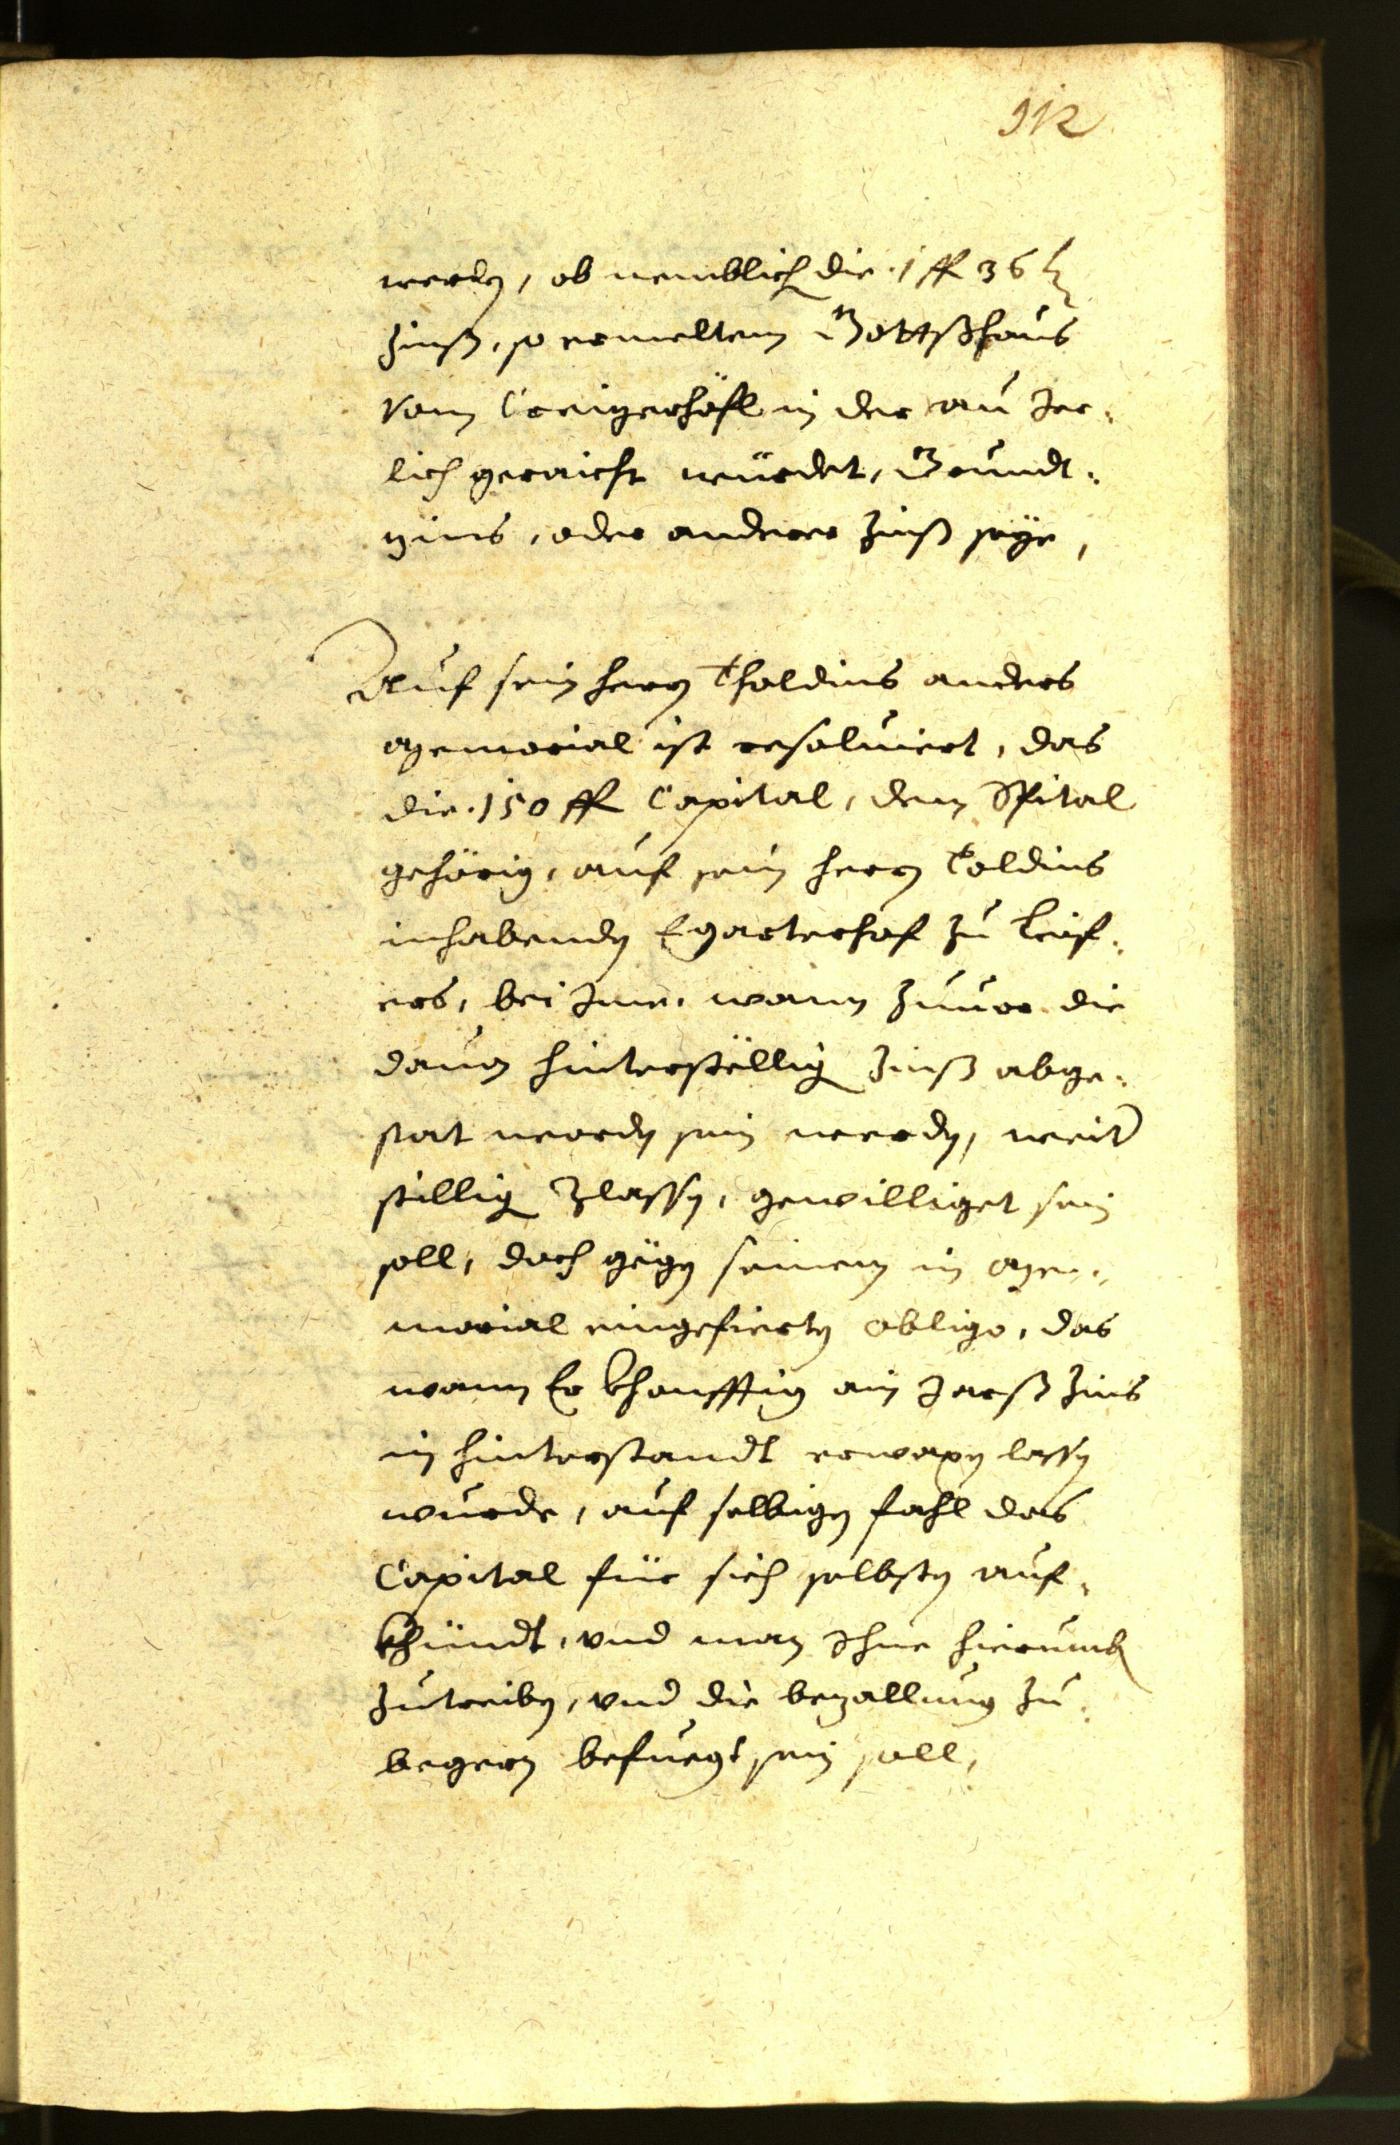 912
werden, ob nemblich die 1 fl 36 kr
Zinß, so ermeltem Gottßhaus
vom Creizerhöfl in der au Jer¬
lich geraicht würdet, Grundt¬
zins, oder anderer Zinß seye,
Auf sein herrn Tholdins anders
memorial ist resolviert, das
die 150 fl Capital, dem Spital
gehörig, auf sein herrn Toldins
inhabenden Egarterhof zu Leif¬
ers, bei Jme, wann zuuor die
dauon hinterstëllig Zinß abge¬
stat worden sein werden, weiter
stillig zlassen, gewilliget sein
soll, doch gëgen seinem in me¬
morial eingefierten obligo, das
wann Er khonfftig ain Jarß Zins
in hinterstandt erwaxen lassen
wurde, auf selbigen fahl das
Capital für sich selbsten auf¬
khündt, vnd man Ihne hierumb
zutreiben, vnd die bezallung zu¬
begern befuegt sein soll,